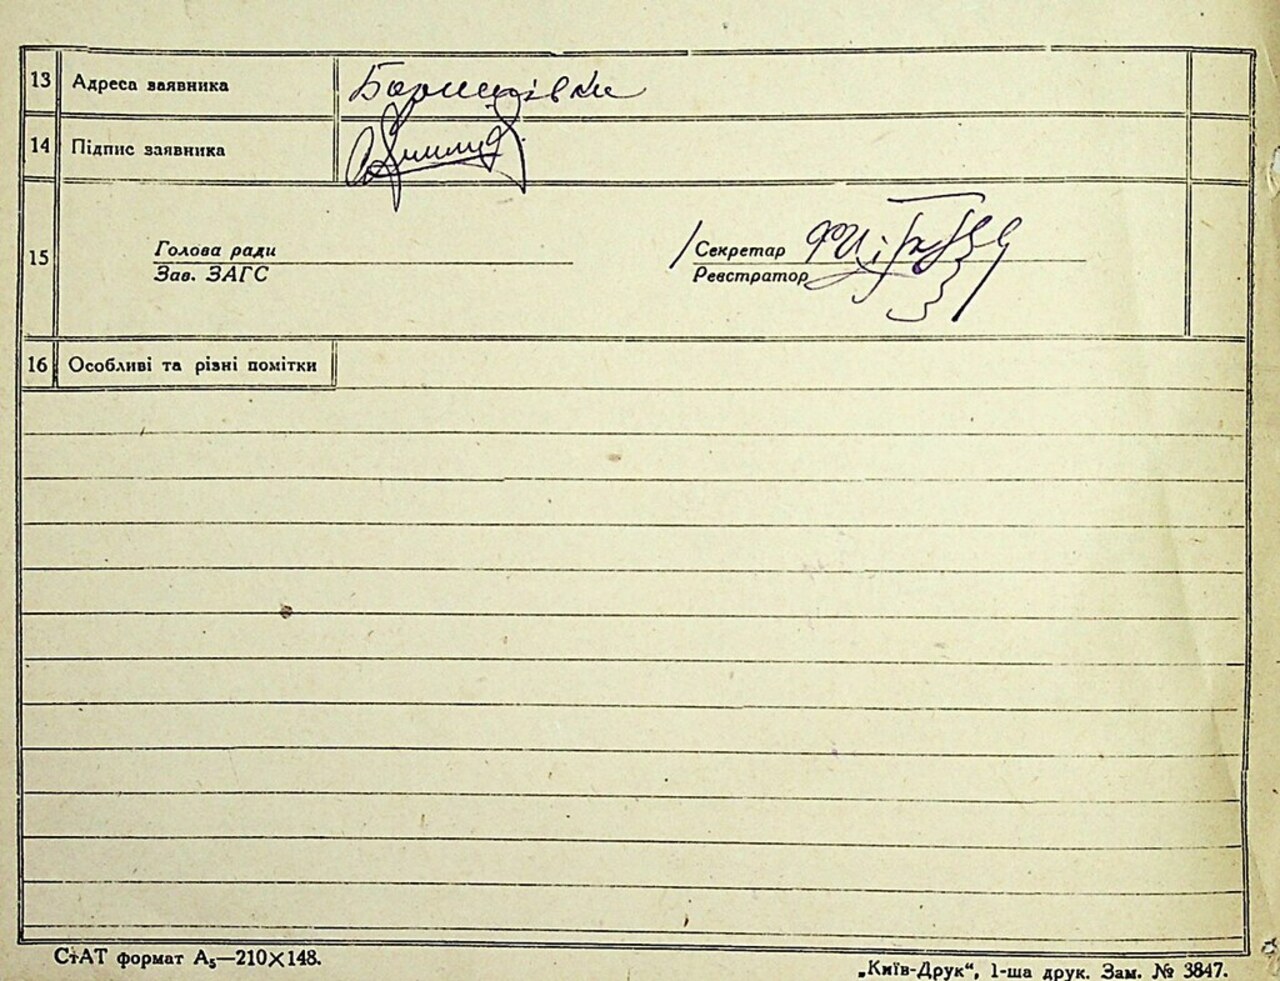 13 Адреса заявника Борщівка
14 Підпис заявника
15 Голова ради Секретар
Зав. ЗАГС Реєстратор
16 Особливі та різні помітки
СтАТ формат А₅—210×148.
„Київ-Друк“, 1-ша друк. Зам. № 3847.